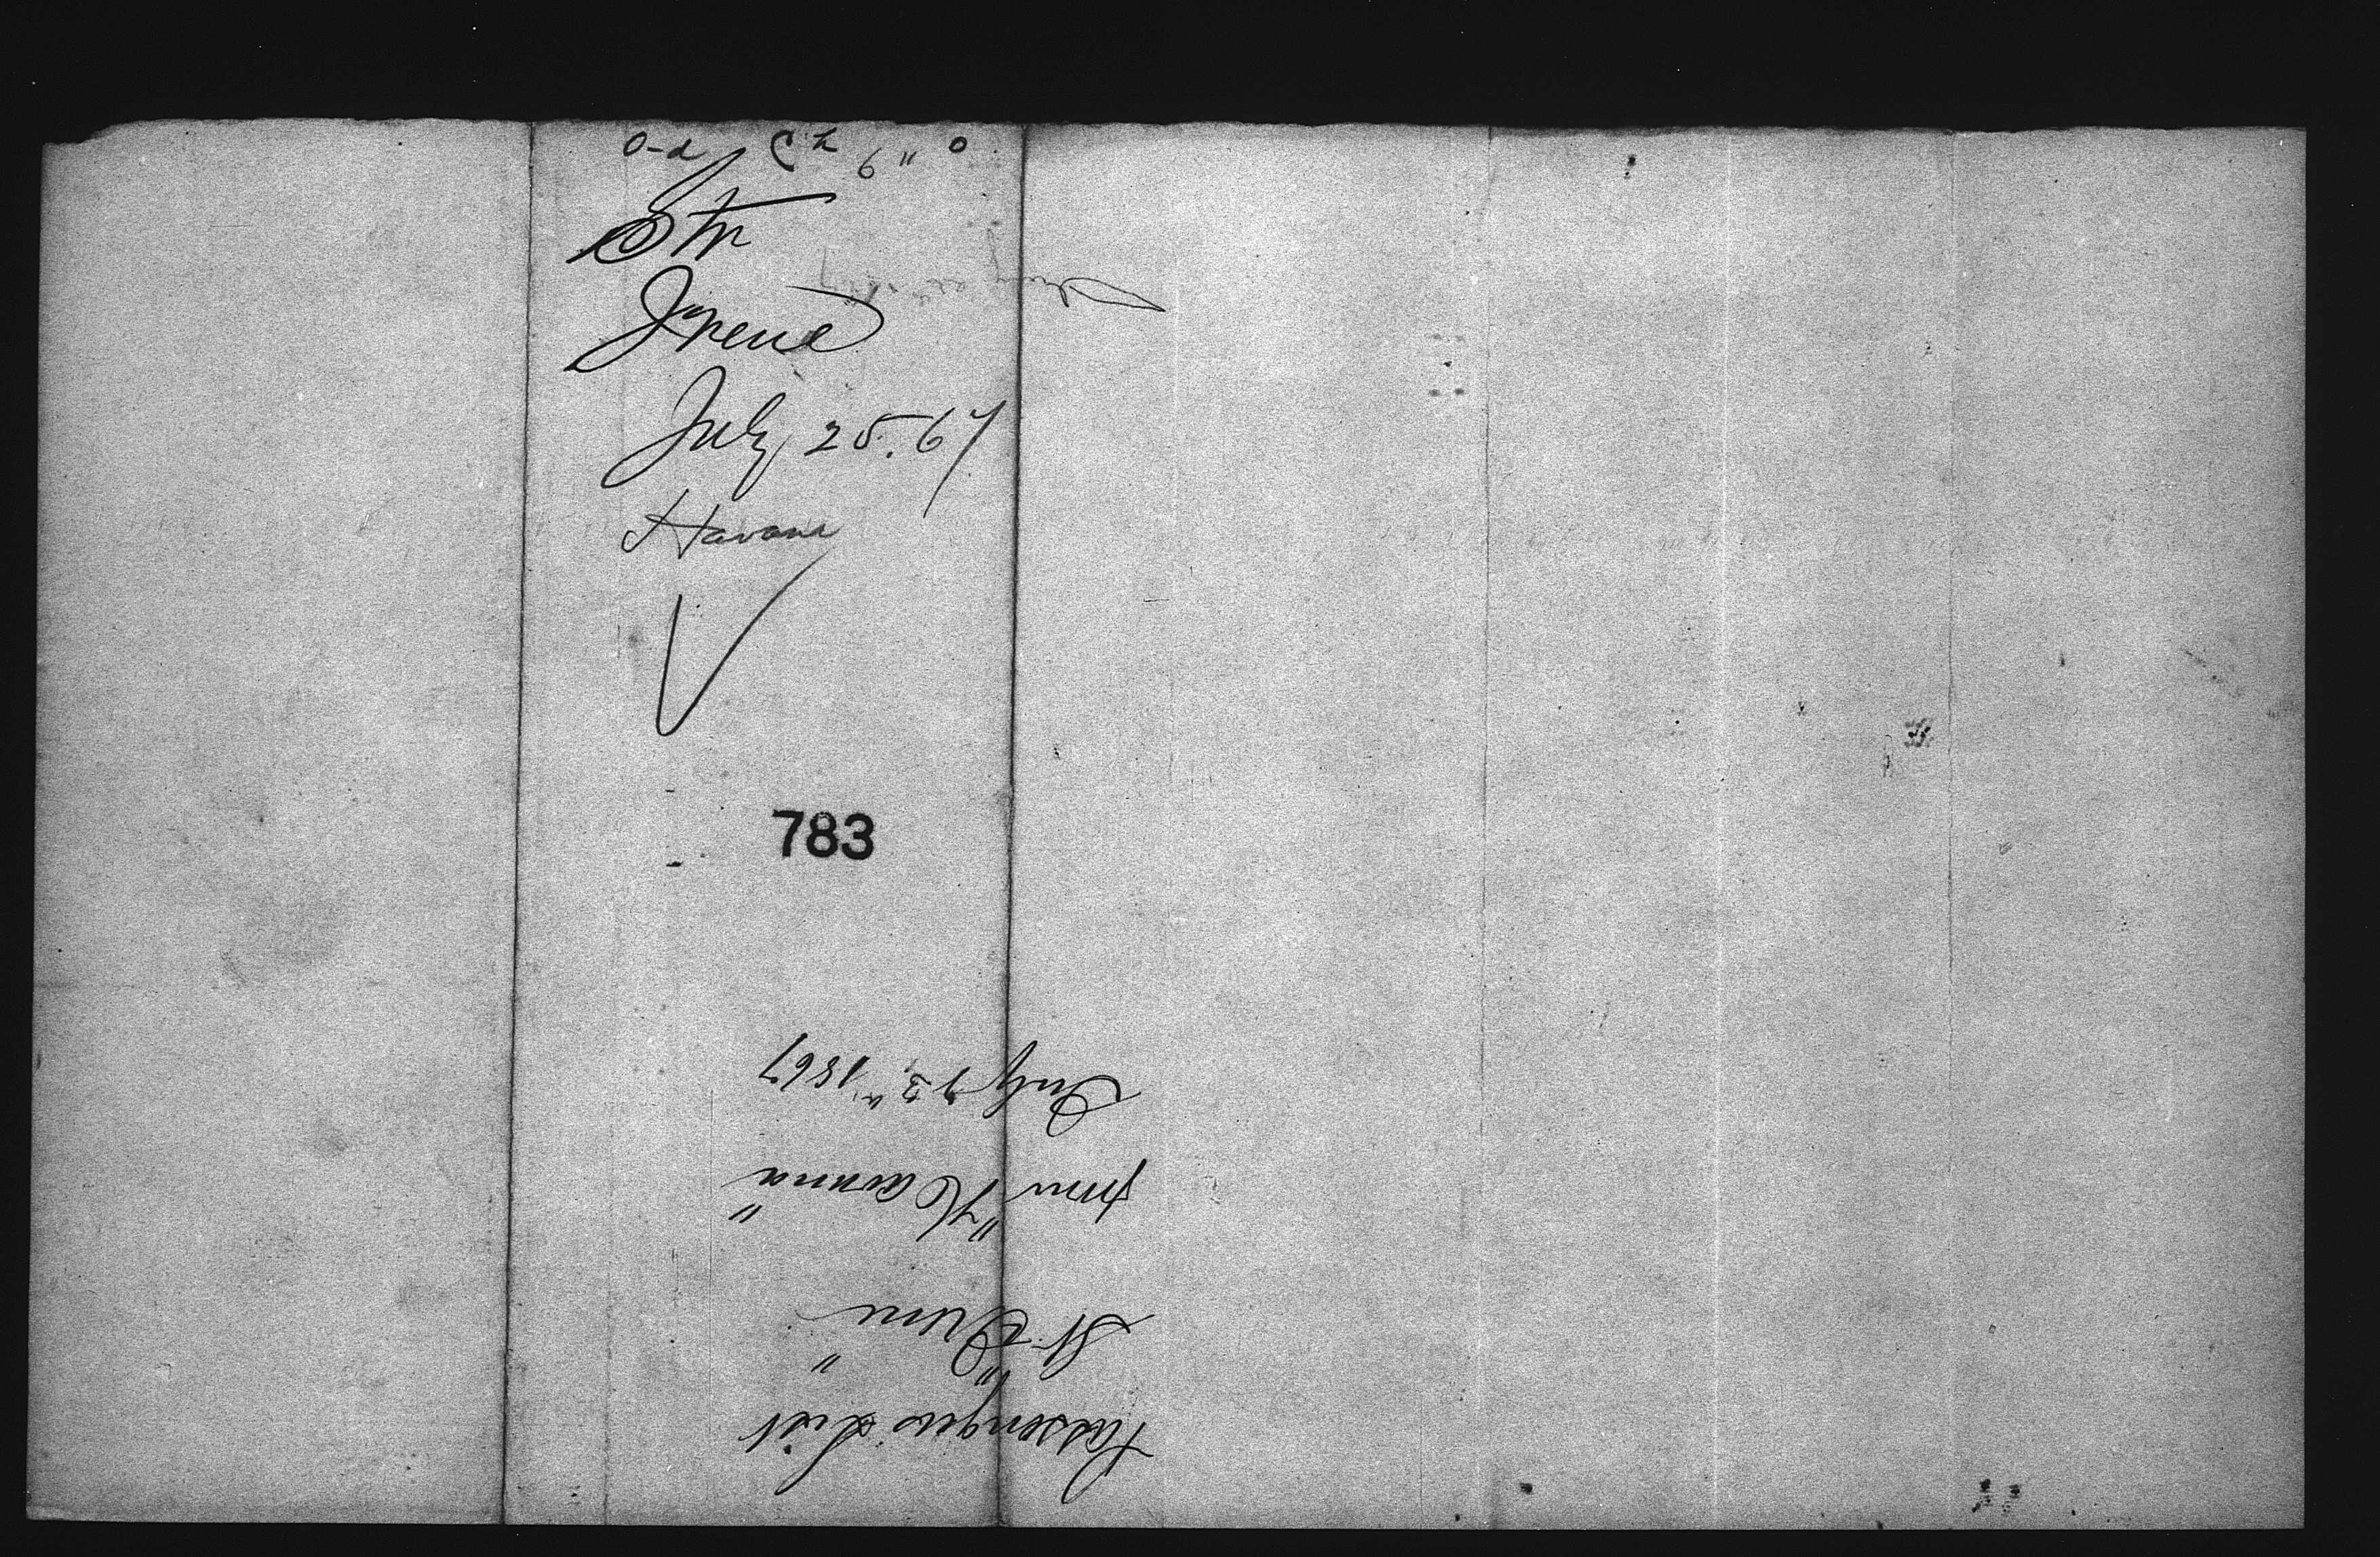 Str
Irene
July 25. 67
Havana
783
Passengers List
St. "Irene"
from "Havana"
July 1867